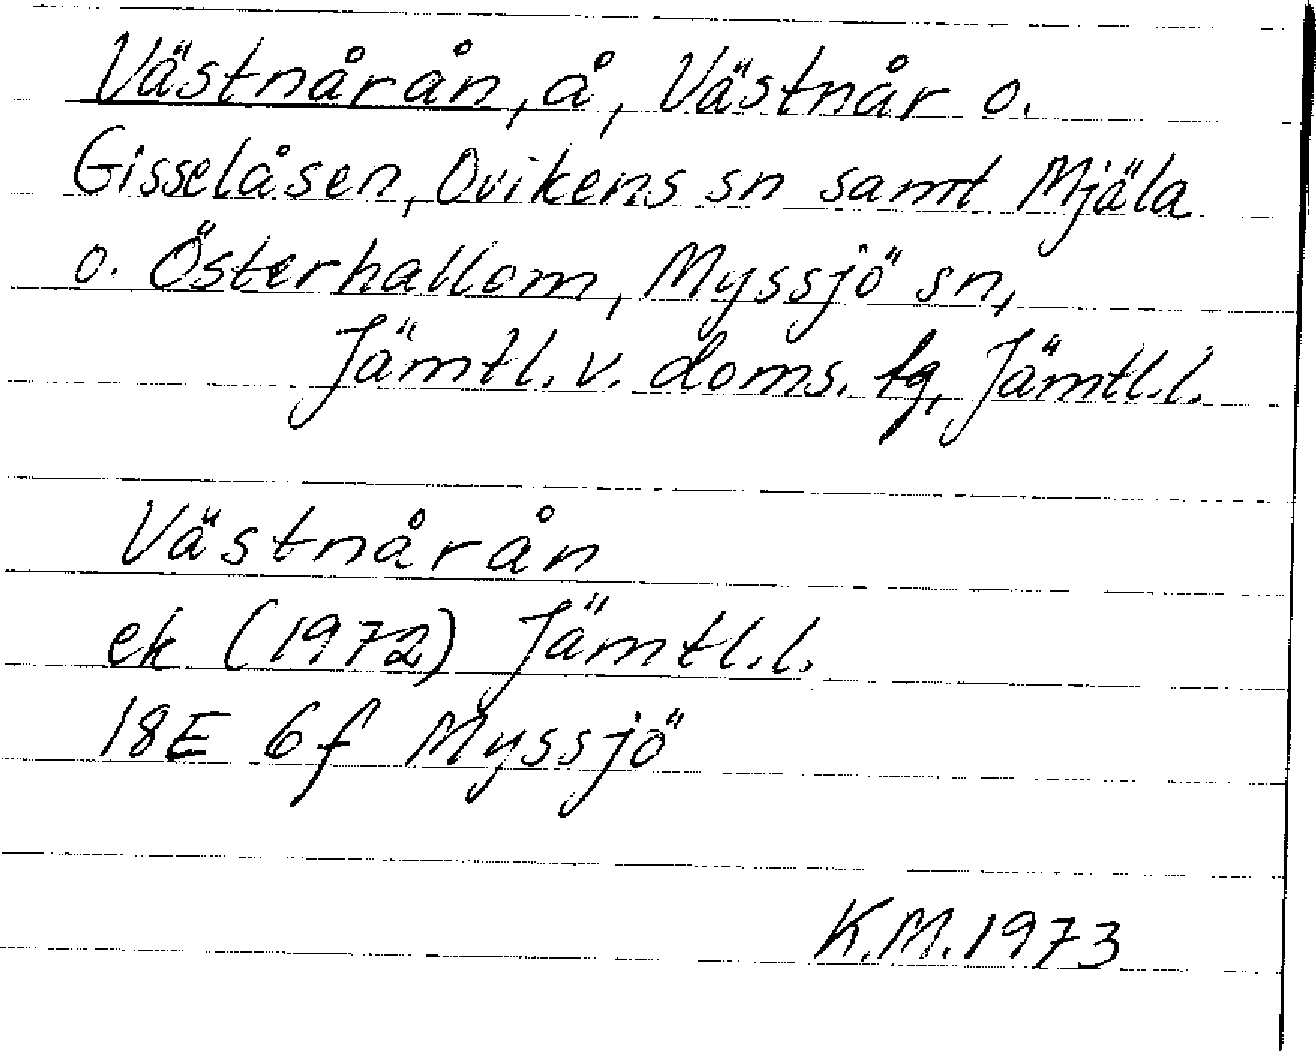 Västnårån, å, Västnår o.
Gisselåsen, Ovikens sn samt Mjäla
o. Österhallom, Myssjö sn,
Jämtl. v. doms. tg, Jämtl.l.
Västnårån
ek (1972) Jämtl.l.
18E 6f Myssjö
K.M. 1973